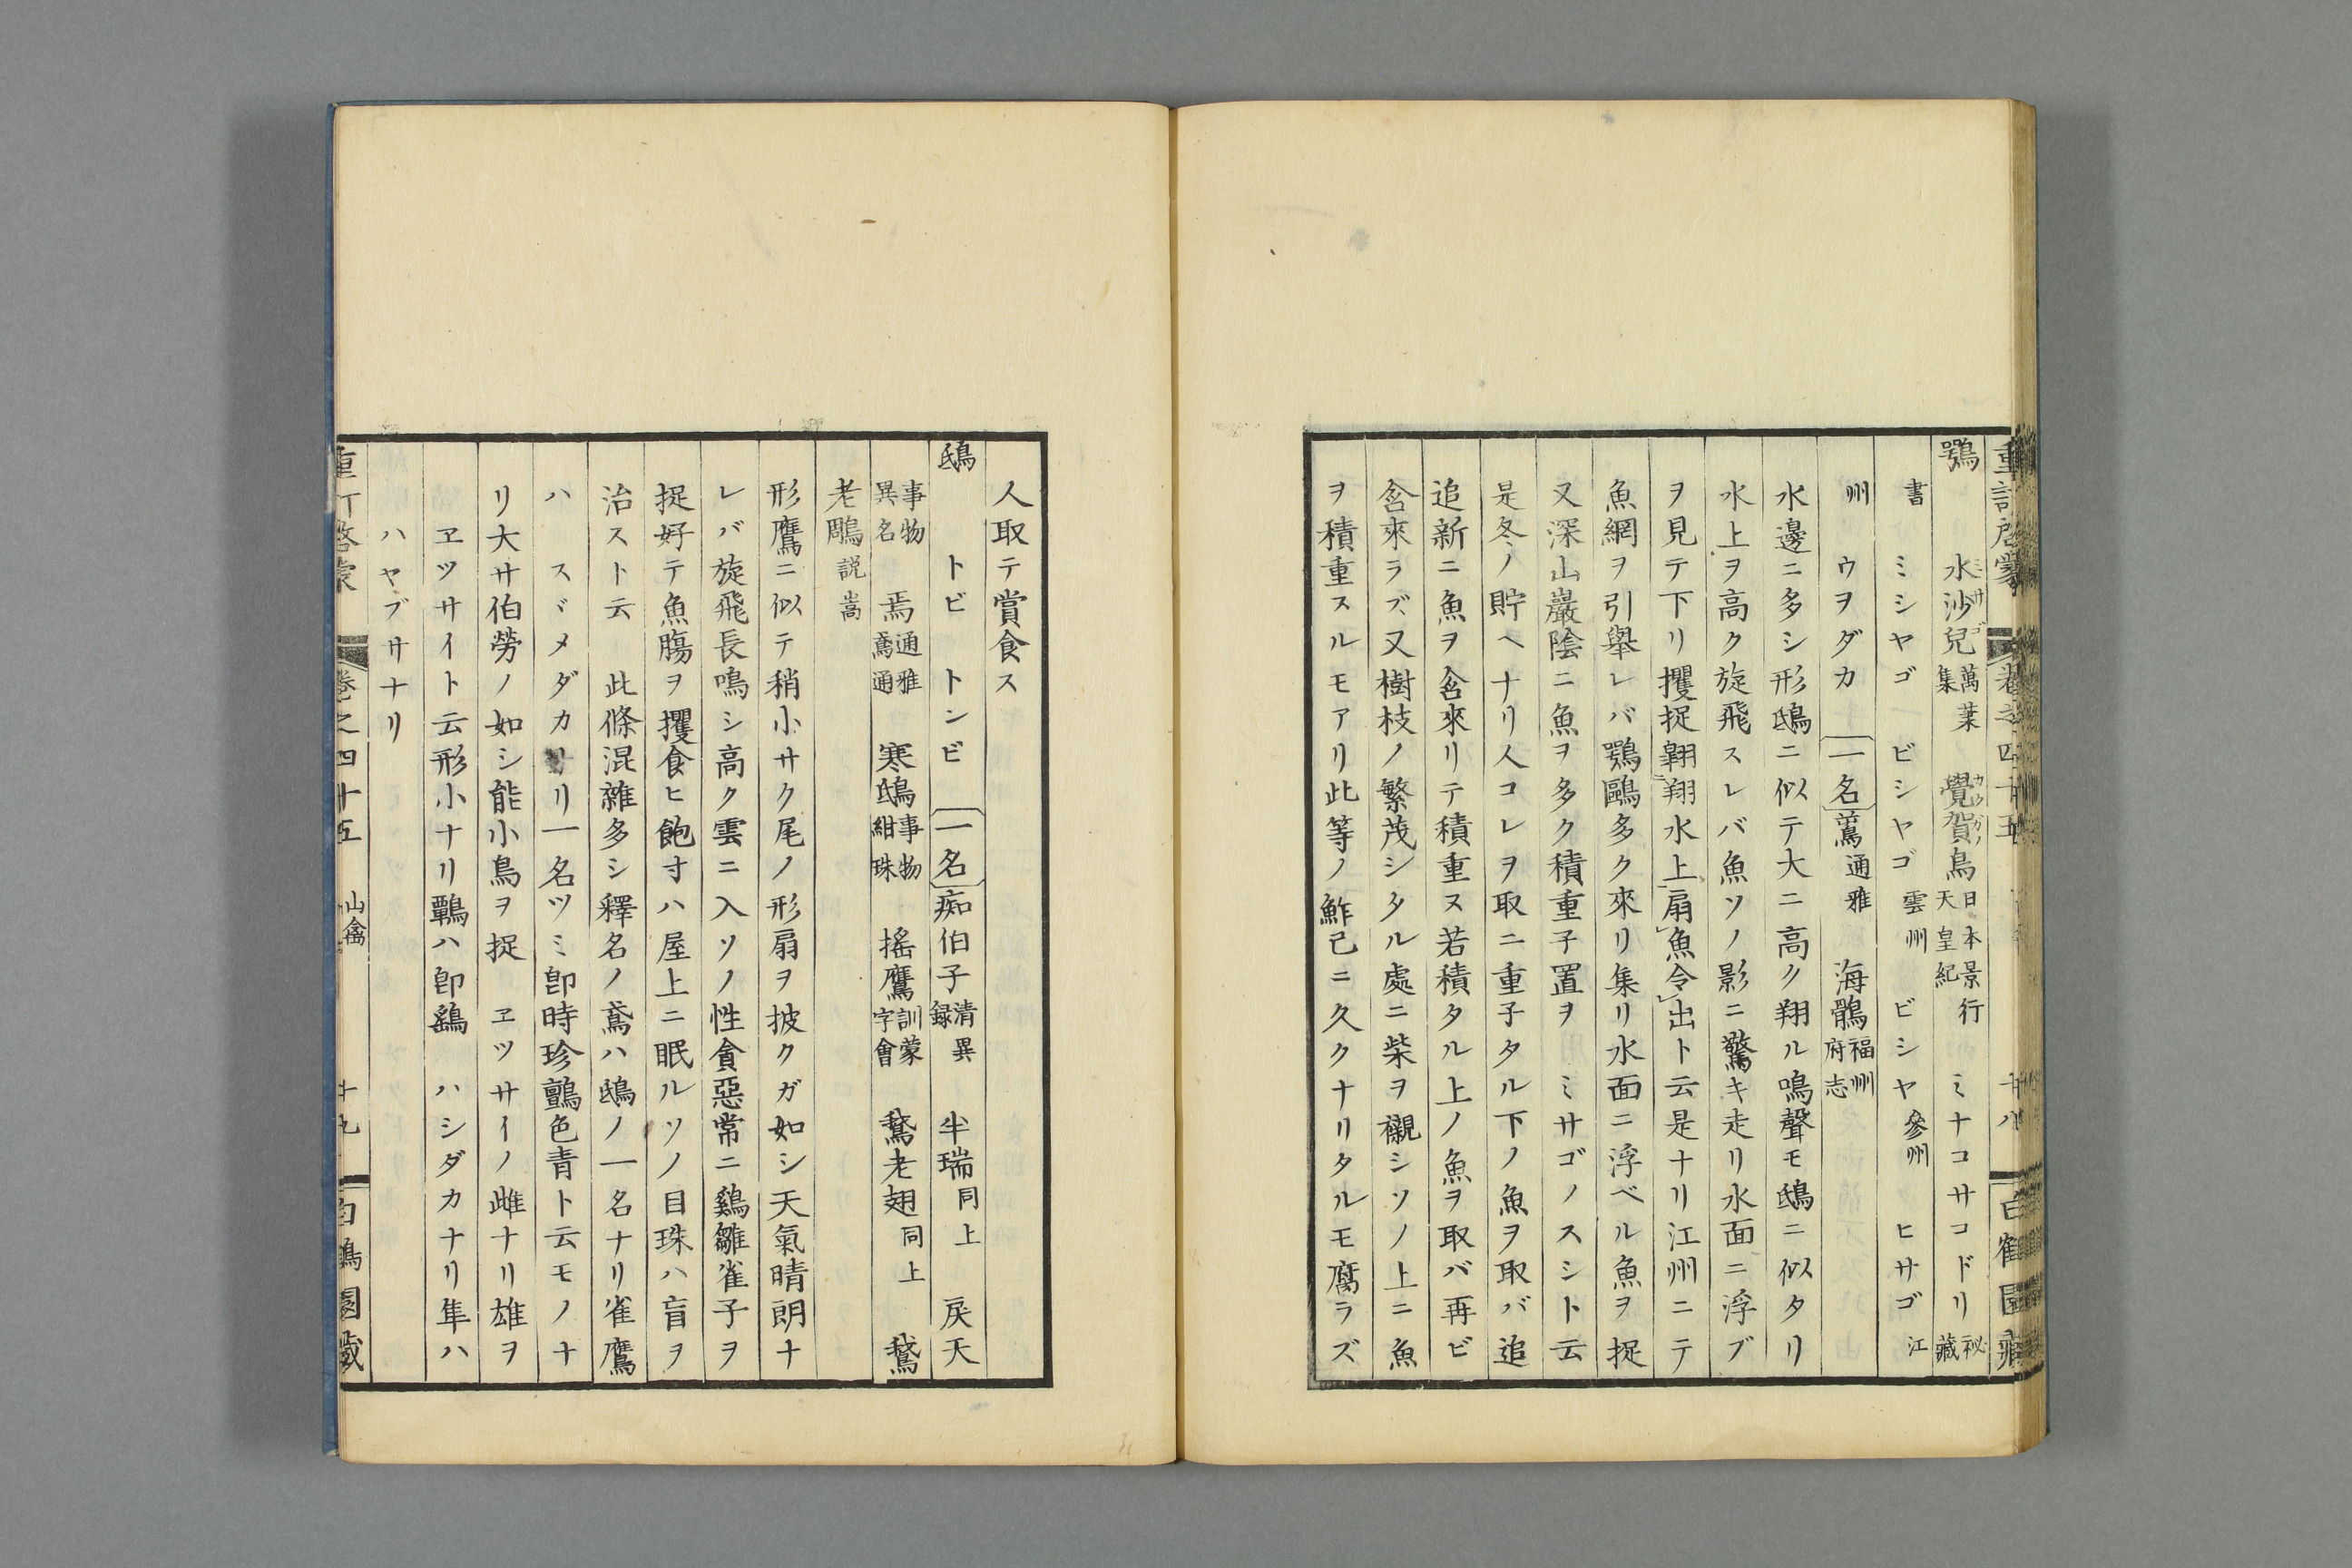 重訂啓蒙 卷之四十五 十八 白鶴園藏
鶚 水沙兒ミサゴ 萬葉集 覺賀鳥カクガノ 日本景行天皇紀 ミナコ サコドリ 祕藏
書 ミシヤゴ ビシヤゴ 雲州 ビシヤ 參州 ヒサゴ 江
州 ウヲダカ 一名 鷮 通雅 海鶻 福州府志
水邊ニ多シ形鴟ニ似テ大ニ高ク翔ル鳴聲モ鴟ニ似タリ
水上ヲ高ク旋飛スレバ魚ソノ影ニ驚キ走リ水面ニ浮ブ
ヲ見テ下リ攫捉翺翔水上扇魚令出ト云是ナリ江州ニテ
魚網ヲ引舉レバ鶚鷗多ク來リ集リ水面ニ浮ベル魚ヲ捉
又深山巖陰ニ魚ヲ多ク積重子置ヲ ミサゴノスシト云
是冬ノ貯ヘナリ人コレヲ取ニ重子タル下ノ魚ヲ取バ追
追新ニ魚ヲ含來リテ積重ヌ若積タル上ノ魚ヲ取バ再ビ
含來ラズ又樹枝ノ繁茂シタル處ニ柴ヲ襯シソノ上ニ魚
ヲ積重スルモアリ此等ノ鮓已ニ久クナリタルモ腐ラズ
人取テ賞食ス
鴟 トビ トンビ 一名 痴伯子 清異録 半瑞 同上 戾天
事物異名 焉 通雅鳶通 寒鴟 事物紺珠 搖鷹 訓蒙字會 鵞老翅 同上 鵞
老鵰 説嵩
形鷹ニ似テ稍小サク尾ノ形扇ヲ披クガ如シ天氣晴朗ナ
レバ旋飛長鳴シ高ク雲ニ入ソノ性貪惡常ニ鷄雛雀子ヲ
捉好テ魚膓ヲ攫食ヒ飽寸ハ屋上ニ眠ルソノ目珠ハ盲ヲ
治スト云 此條混雜多シ釋名ノ鳶ハ鴟ノ一名ナリ雀鷹
ハ スヾメダカリリ一名ツミ卽時珍鸇色青ト云モノナ
リ大サ伯勞ノ如シ能小鳥ヲ捉 ヱツサイノ雌ナリ雄ヲ
ヱツサイト云形小ナリ鷣ハ卽鷂 ハシダカナリ隼ハ
ハヤブサナリ
重訂啓蒙 卷之四十五 山禽 十九 白鶴園藏